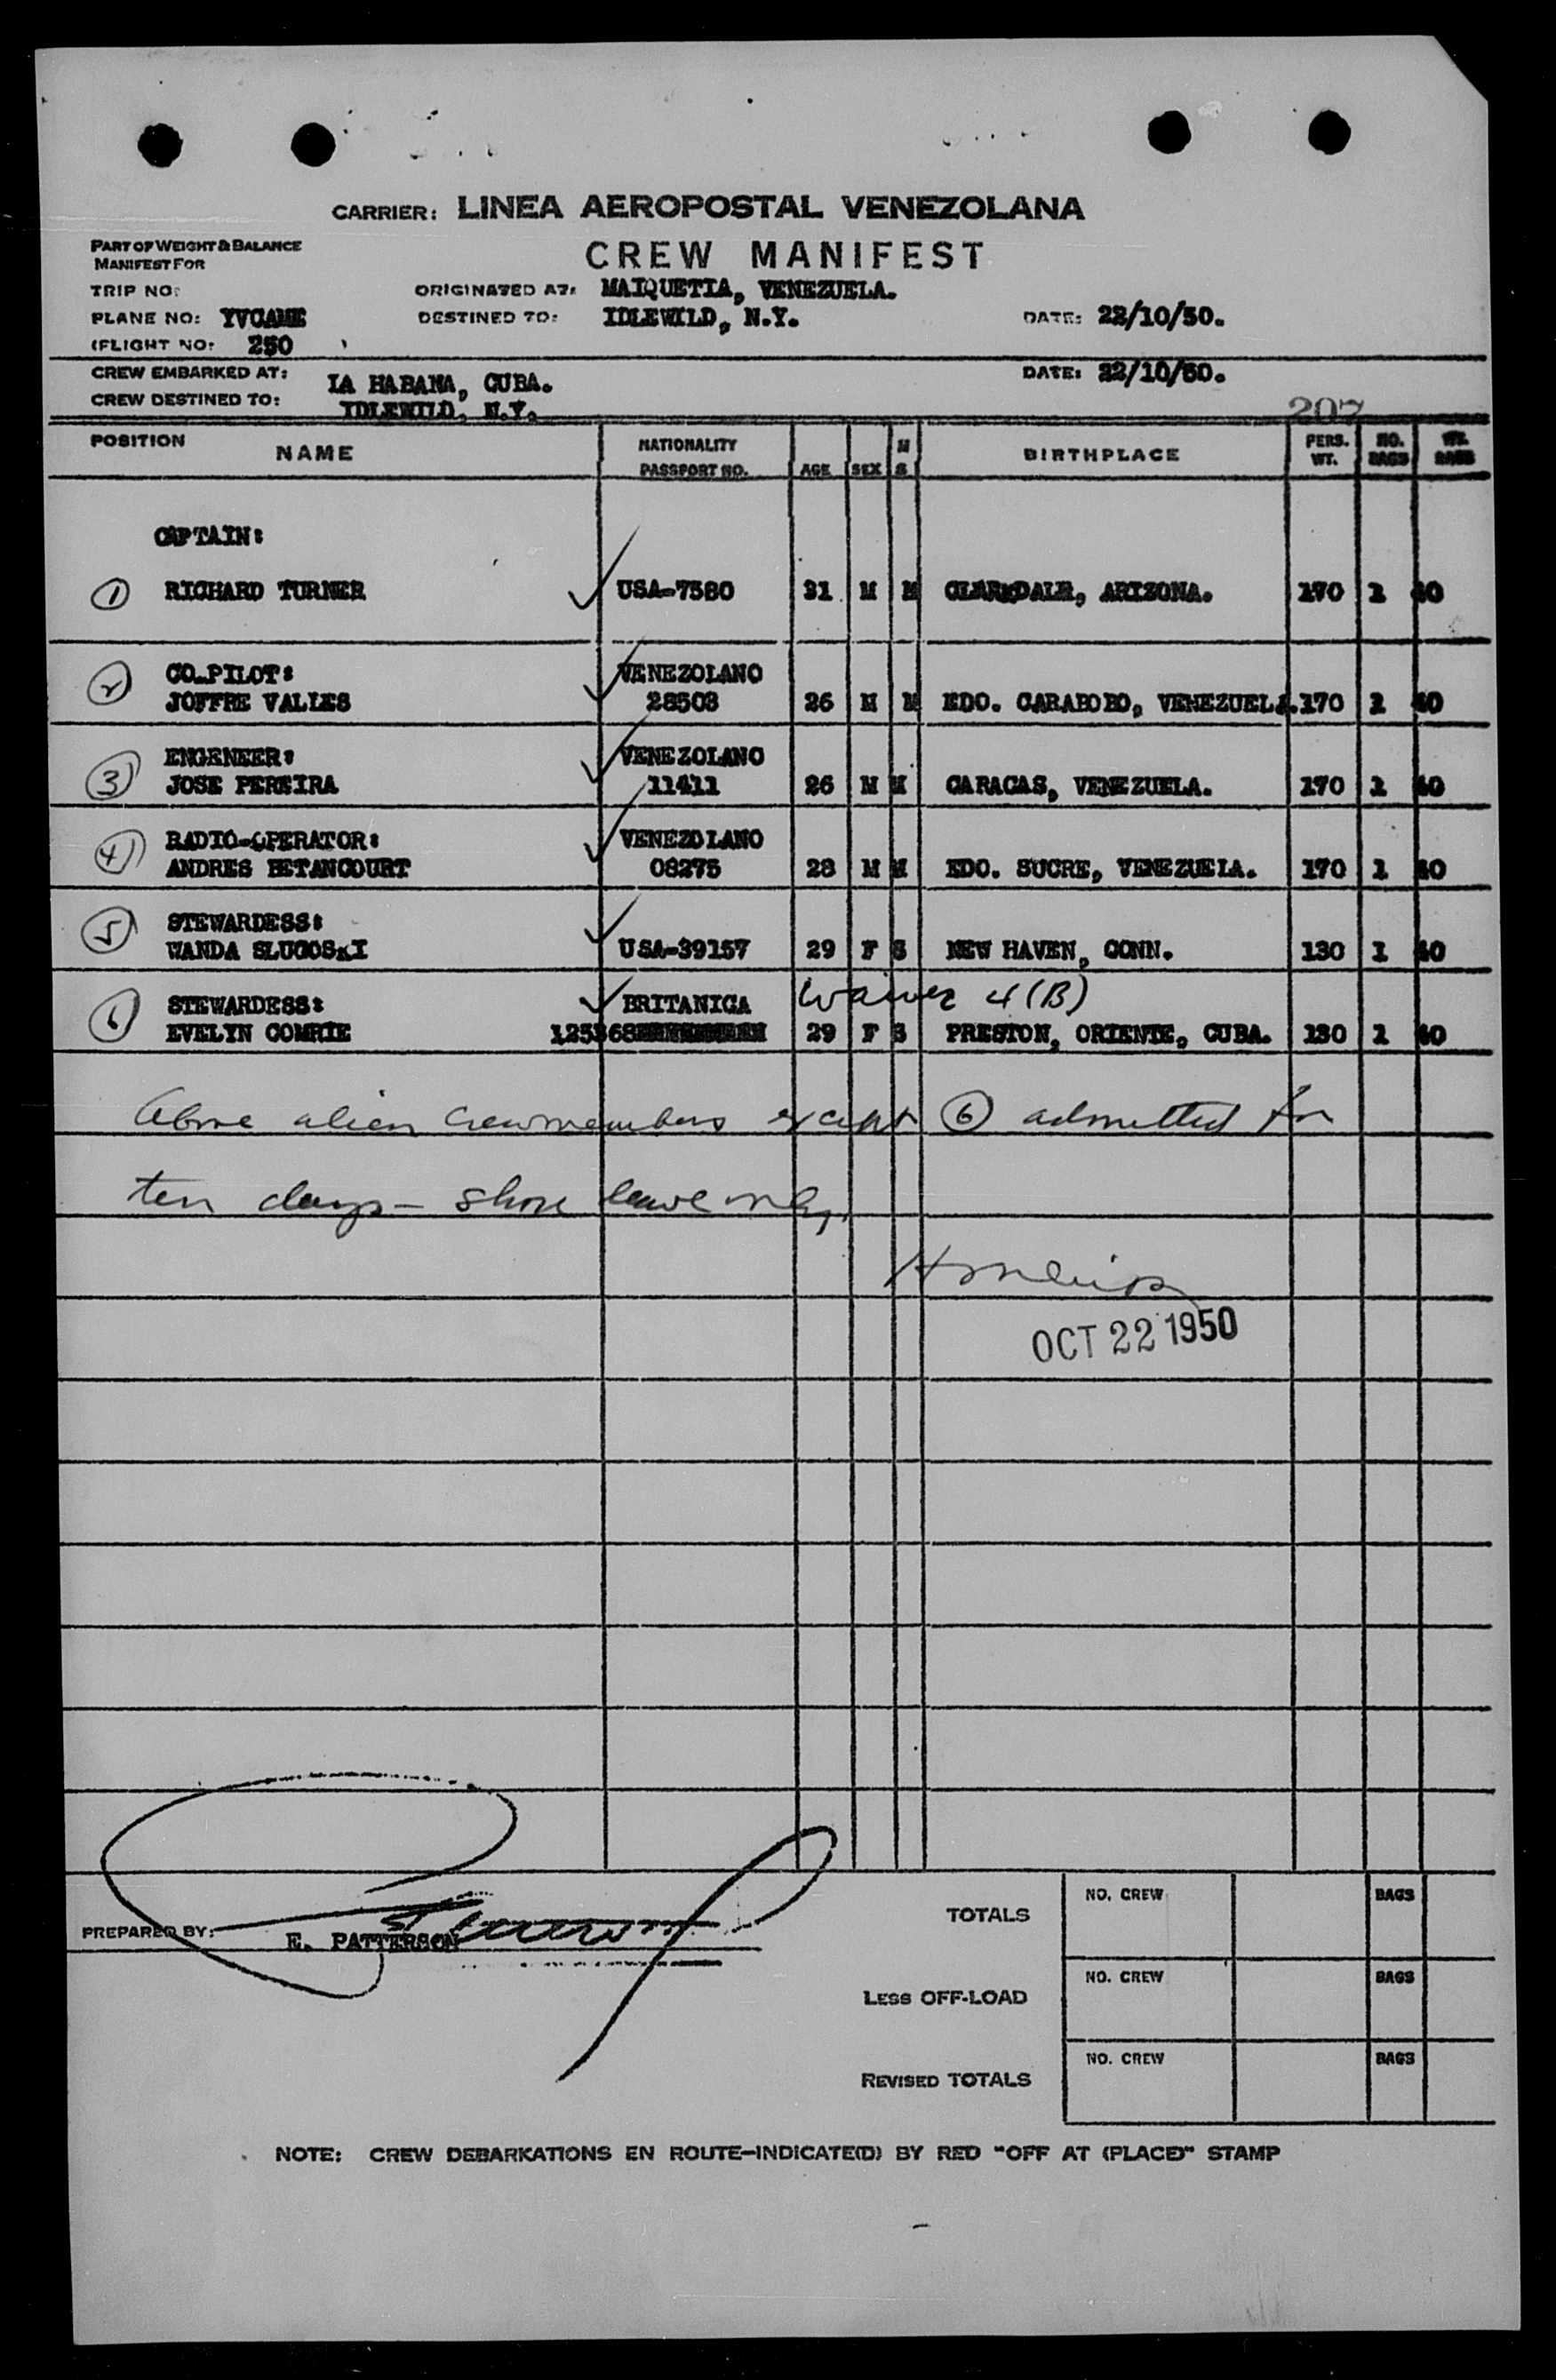 CARRIER: LINEA AEROPOSTAL VENEZOLANA
PART OF WEIGHT & BALANCE
MANIFEST FOR
CREW MANIFEST
TRIP NO:
ORIGINATED AT: MAIQUETIA, VENEZUELA.
PLANE NO: YVCAME
DESTINED TO: IDLEWILD, N.Y.
DATE: 22/10/50.
(FLIGHT NO: 250
CREW EMBARKED AT: LA HABANA, CUBA.
DATE: 22/10/50.
CREW DESTINED TO: IDLEWILD, N.Y.
207
POSITION NAME NATIONALITY PASSPORT NO. AGE SEX M S BIRTHPLACE PERS. WT. NO. BAGS WT. BAGS
CAPTAIN:
1 RICHARD TURNER USA-7580 31 M M CLARKDALE, ARIZONA. 170 1 40
CO-PILOT: VENEZOLANO
2 JOFFRE VALLES 28503 26 M M EDO. CARABOBO, VENEZUELA. 170 1 40
ENGENEER: VENEZOLANO
3 JOSE PEREIRA 11411 26 M M CARACAS, VENEZUELA. 170 1 40
RADIO-OPERATOR: VENEZOLANO
4 ANDRES BETANCOURT 08275 28 M M EDO. SUCRE, VENEZUELA. 170 1 40
STEWARDESS:
5 WANDA SLUGOSKI USA-39157 29 F S NEW HAVEN, CONN. 130 1 40
STEWARDESS: BRITANICA Waiver 4(B)
6 EVELYN COMRIE 125368 29 F S PRESTON, ORIENTE, CUBA. 130 1 40
Above alien crewmembers except 6 admitted for
ten days - shore leave only.
OCT 22 1950
PREPARED BY: E. PATTERSON
TOTALS NO. CREW BAGS
LESS OFF-LOAD NO. CREW BAGS
REVISED TOTALS NO. CREW BAGS
NOTE: CREW DEBARKATIONS EN ROUTE-INDICATE(D) BY RED "OFF AT (PLACE)" STAMP